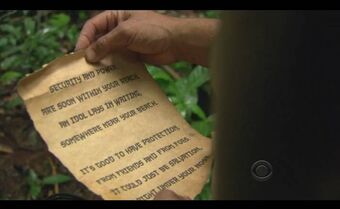 SECURITY AND POWER
ARE SOON WITHIN YOUR REACH,
AN IDOL LAYS IN WAITING,
SOMEWHERE NEAR YOUR BEACH.
IT'S GOOD TO HAVE PROTECTION,
FROM FRIENDS AND FROM FOES.
IT COULD JUST BE SALVATION,
RIGHT UNDER YOUR